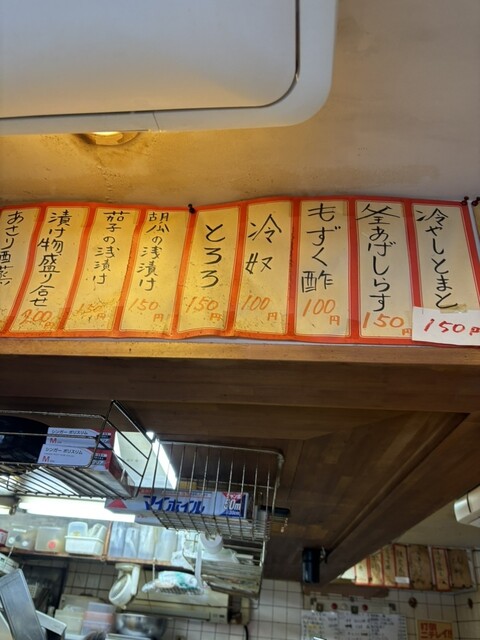 冷やしとまと
150円
釜あげしらす
150円
もずく酢
100円
冷奴
100円
とろろ
150円
胡瓜の浅漬け
150円
茄子の浅漬け
150円
漬け物盛り合せ
あさり酒蒸
シンガー ポリスリム
M
シンガー ポリスリム
M
マイホイル